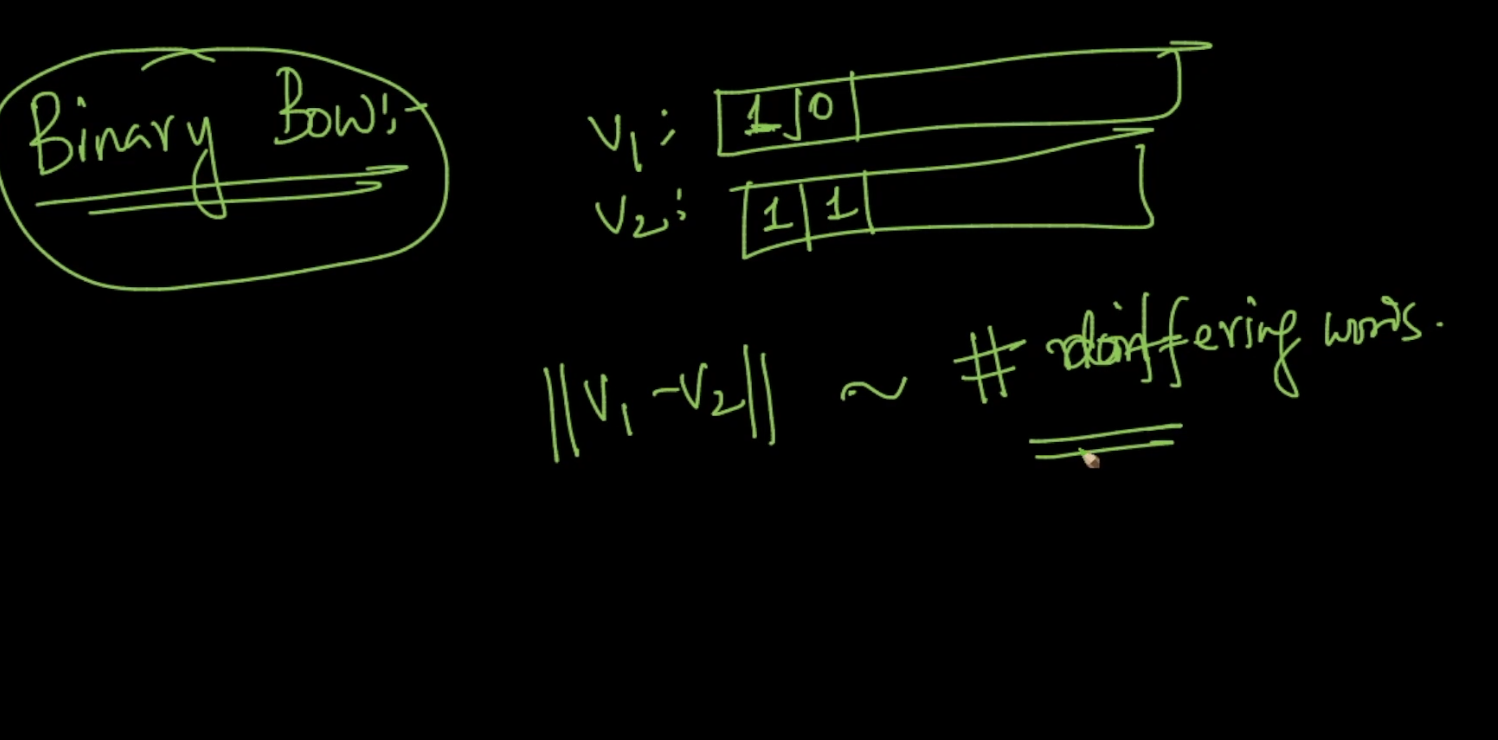 Binary Bow:-
V1: 1 0
V2: 1 1
||V1 - V2|| ~ # differing words.